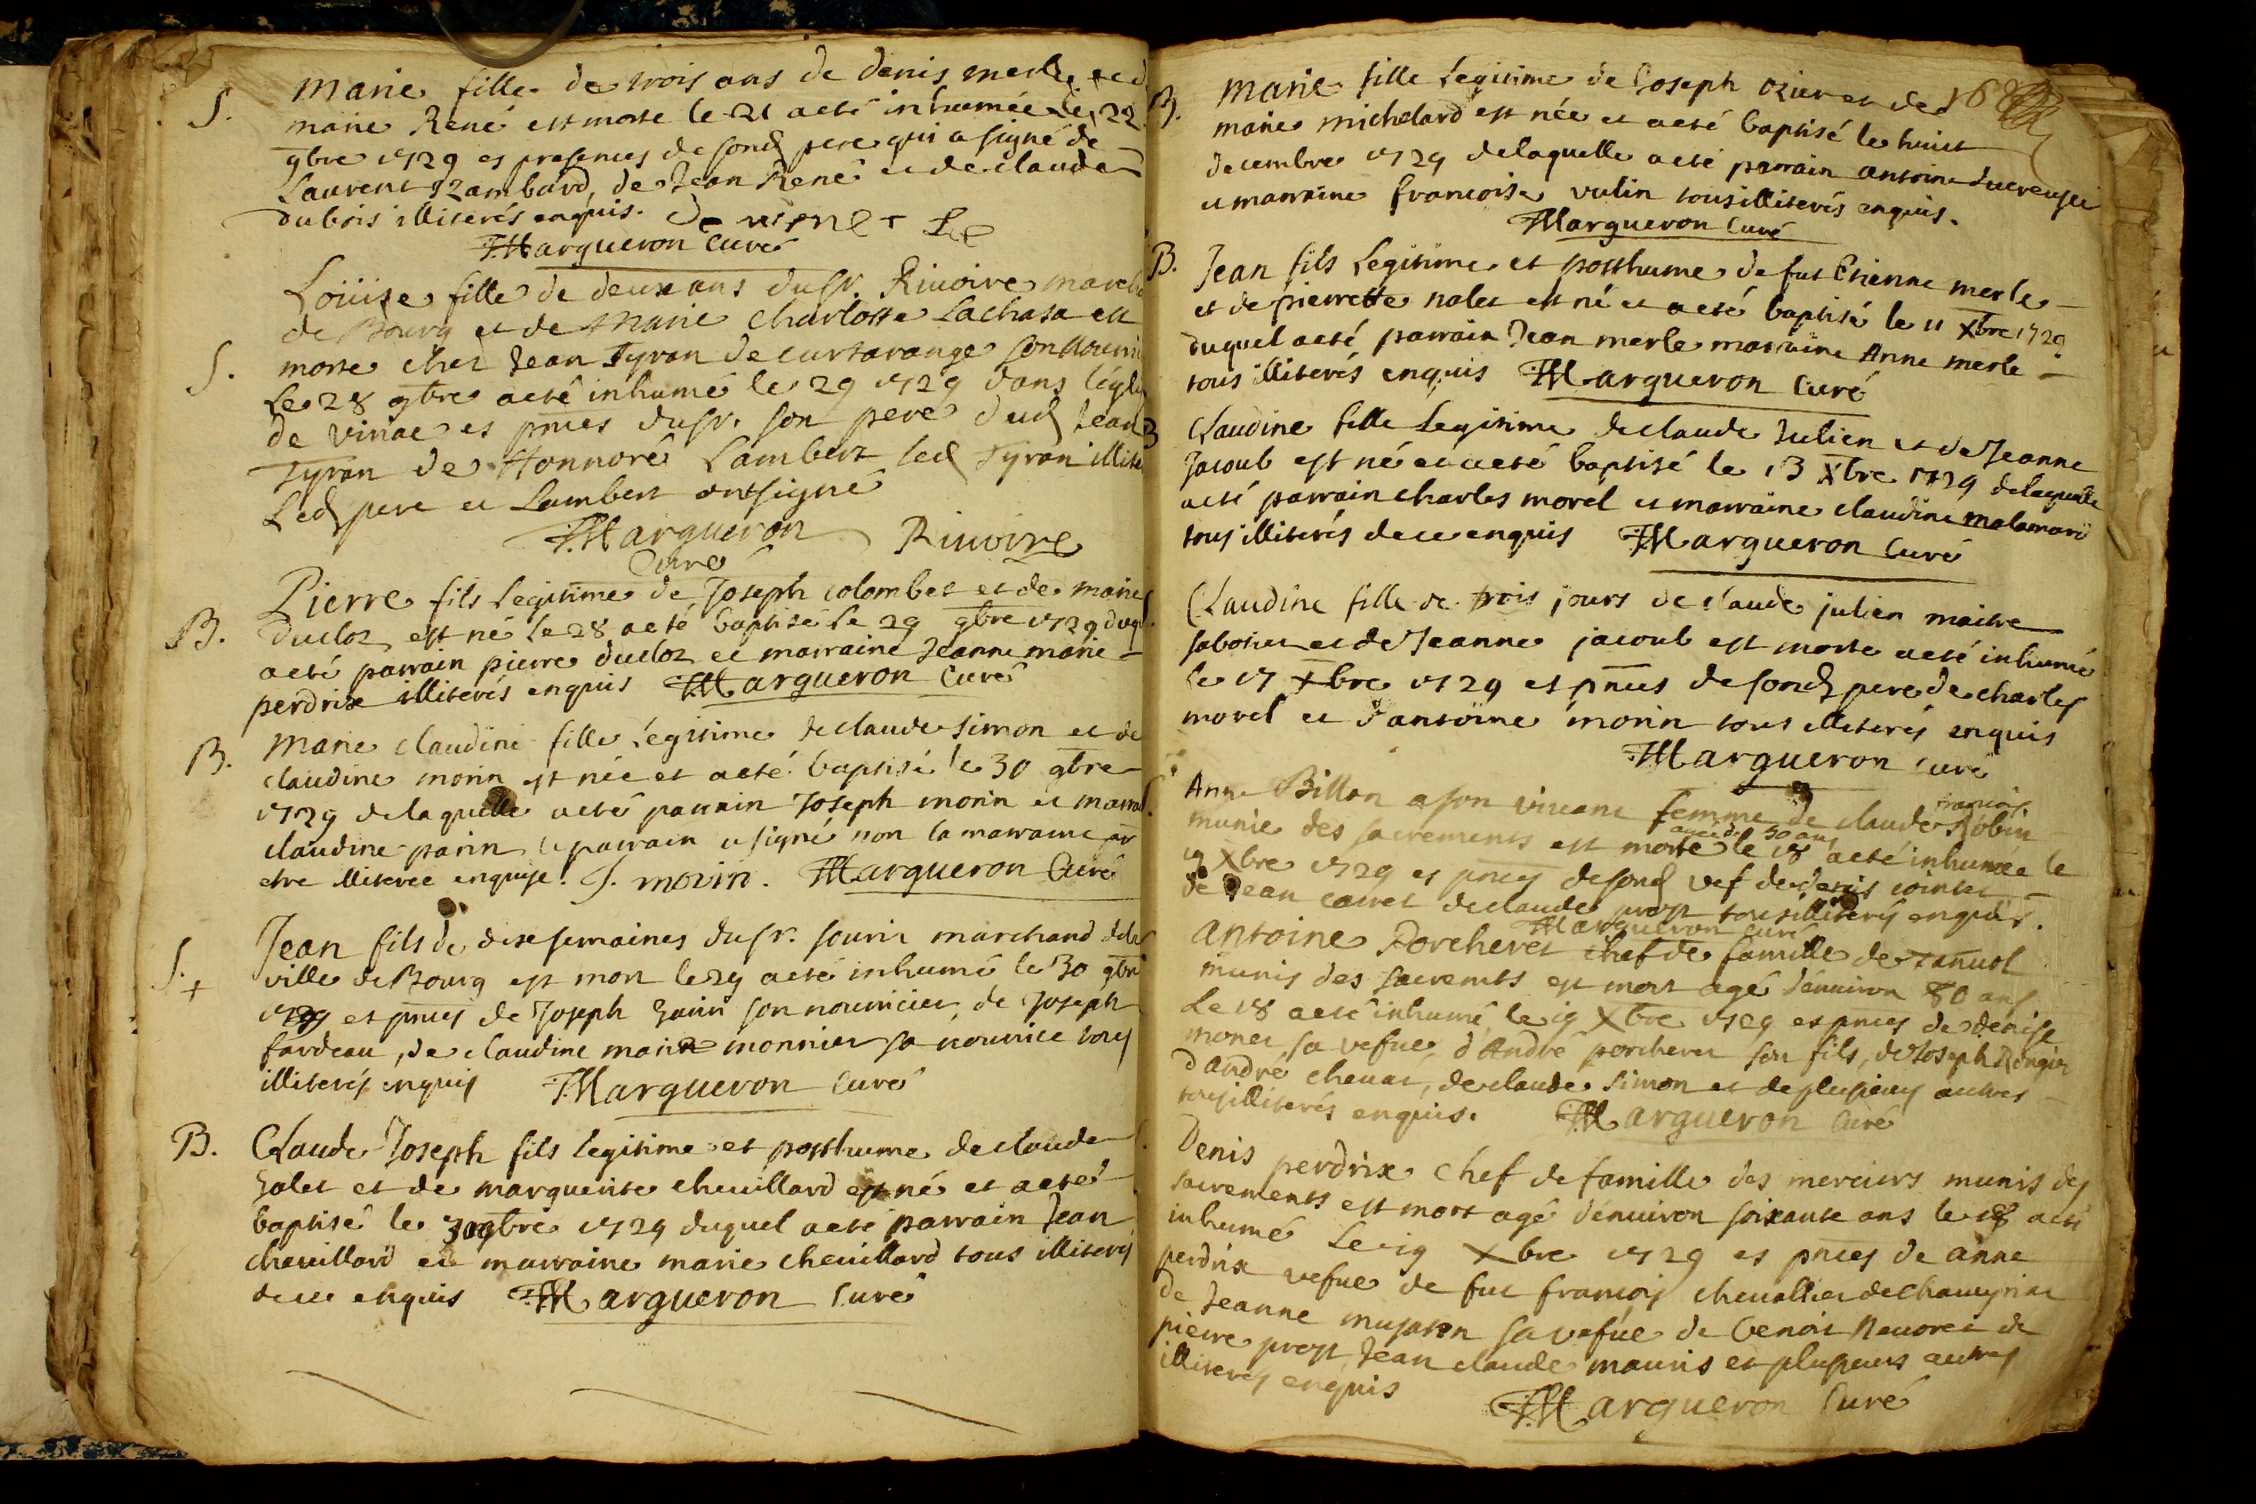 S. Marie fille de trois ans de denis merle et d
marie René est morte le 21 a eté inhumée le 22
9bre 1729 es presences de sond pere qui a signé de
Laurent Zambard, de Jean René et de claude
dubois illiterés enquis.
JMargueron Curé
Loüise fille de deux ans du sr. Riuoire march
de Bourg et de Marie Charlotte Lachasa est
S. morte chez Jean Tyran de curtarange son nourri
Le 28 9bre a eté inhumé le 29 1729 dans l'égli
de viriac es pnces du sr. son pere dud Jean
Tyran de Honnoré Lambert led Tyran illite
Led pere et Lambert ont signé
JMargueron Riuoire
Curé
Pierre fils Legitime de Joseph colombet et de marie
B. ducloz est né le 28 a eté baptisé le 29 9bre 1729 duq
a eté parrain pierre ducloz et marraine Jeanne marie
perdrix illiterés enquis JMargueron Curé
B. Marie claudine fille Légitime de claude simon et de
claudine morin est née et a eté baptisé le 30 9bre
1729 de laquelle a eté parrain Joseph morin et marra
claudine parin le parrain a signé non la marraine
etre illiteree enquise. J. morin. JMargueron Curé
Jean fils de dix semaines du sr. sourir marchand dela
S. + ville de Bourg est mort le 29 a eté inhumé le 30 9bre
1729 es pnces de Joseph son nourricier, de Joseph
fardeau, de claudine monnier sa nourrice tous
illiterés enquis JMargueron Curé
B. Claude Joseph fils legitime et posthume de claude
Jolet et de marguerite cheuillard est né et a eté
baptisé le 30 9bre 1729 duquel a eté parrain Jean
cheuillard et marraine marie cheuillard tous illiterés
de ce enquis JMargueron Curé
168
B. Marie fille Legitime de Joseph ozier et de
marie michelard est née et a eté baptisé le huict
decembre 1729 de laquelle a eté parrain antoine ducreuset
et marraine francoise vulin tous illiterés enquis.
JMargueron Curé
B. Jean fils Légitime et posthume de fut Etienne merle
et de pierrette nalet est né et a eté baptisé le 11 Xbre 1729
duquel a eté parrain Jean merle marraine Anne merle
tous illiterés enquis JMargueron Curé
B Claudine fille Legitime de claude Julien et de Jeanne
Jacoub est né et a eté baptisé le 13 Xbre 1729 de laquelle
a eté parrain charles morel et marraine claudine malamard
tous illiterés de ce enquis JMargueron Curé
Claudine fille de trois jours de claude julien maitre
sabotier et de Jeanne jacoub est morte a eté inhumé
le 17 Xbre 1729 es pnces de sond pere de charles
morel et d'antoine morin tous illiterés enquis
JMargueron Curé
Anne Billon a son viuant femme de claude françois Robin
munie des sacrements est morte agée de 50 ans le 18 a eté inhumée le
19 Xbre 1729 es pnces de sond vef de denis cointet
de Jean cauet de claude prost tous illiterés enquis.
JMargueron curé
Antoine Porcheret chef de famille de Tanuol
munis des sacremts est mort agé d'enuiron 80 ans
Le 18 a eté inhumé le 19 Xbre 1729 es pnces de denise
monet sa vefue d'André porcheret son fils, de Joseph Rongin
d'andré cheuat, de claude simon et de plusieurs autres
tous illiterés enquis. JMargueron Curé
Denis perdrix chef de famille des merciers munis des
sacrements est mort agé denuiron soixante ans le 18 a eté
inhumé Le 19 Xbre 1729 es pnces de anne
perdrix vefue de fut françois cheuallier de
de Jeanne sa vefue de benoit Reuoret de
pierre prost Jean claude mauris et plusieurs autres
illiterés enquis
JMargueron Curé